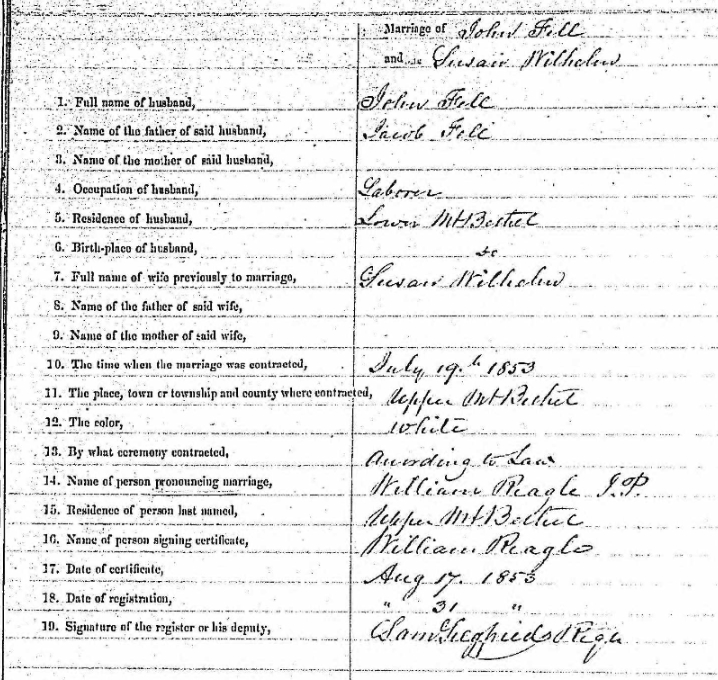 Marriage of John Fell
and Susan Wilhelm
1. Full name of husband, John Fell
2. Name of the father of said husband, Jacob Fell
3. Name of the mother of said husband,
4. Occupation of husband, Laborer
5. Residence of husband, Lower Mt Bethel
6. Birth-place of husband, do
7. Full name of wife previously to marriage, Susan Wilhelm
8. Name of the father of said wife,
9. Name of the mother of said wife,
10. The time when the marriage was contracted, July 19th 1853
11. The place, town or township and county where contracted, Upper Mt Bethel
12. The color, White
13. By what ceremony contracted, According to Law
14. Name of person pronouncing marriage, William Reagle J.P.
15. Residence of person last named, Upper Mt Bethel
16. Name of person signing certificate, William Reagle
17. Date of certificate, Aug 17. 1853
18. Date of registration, " 31 "
19. Signature of the register or his deputy, Sam Siegfried